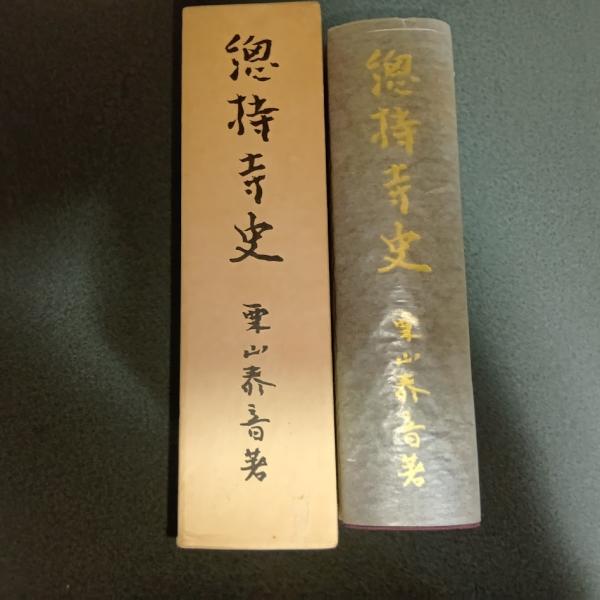 總持寺史
栗山泰音著
總持寺史
栗山泰音著